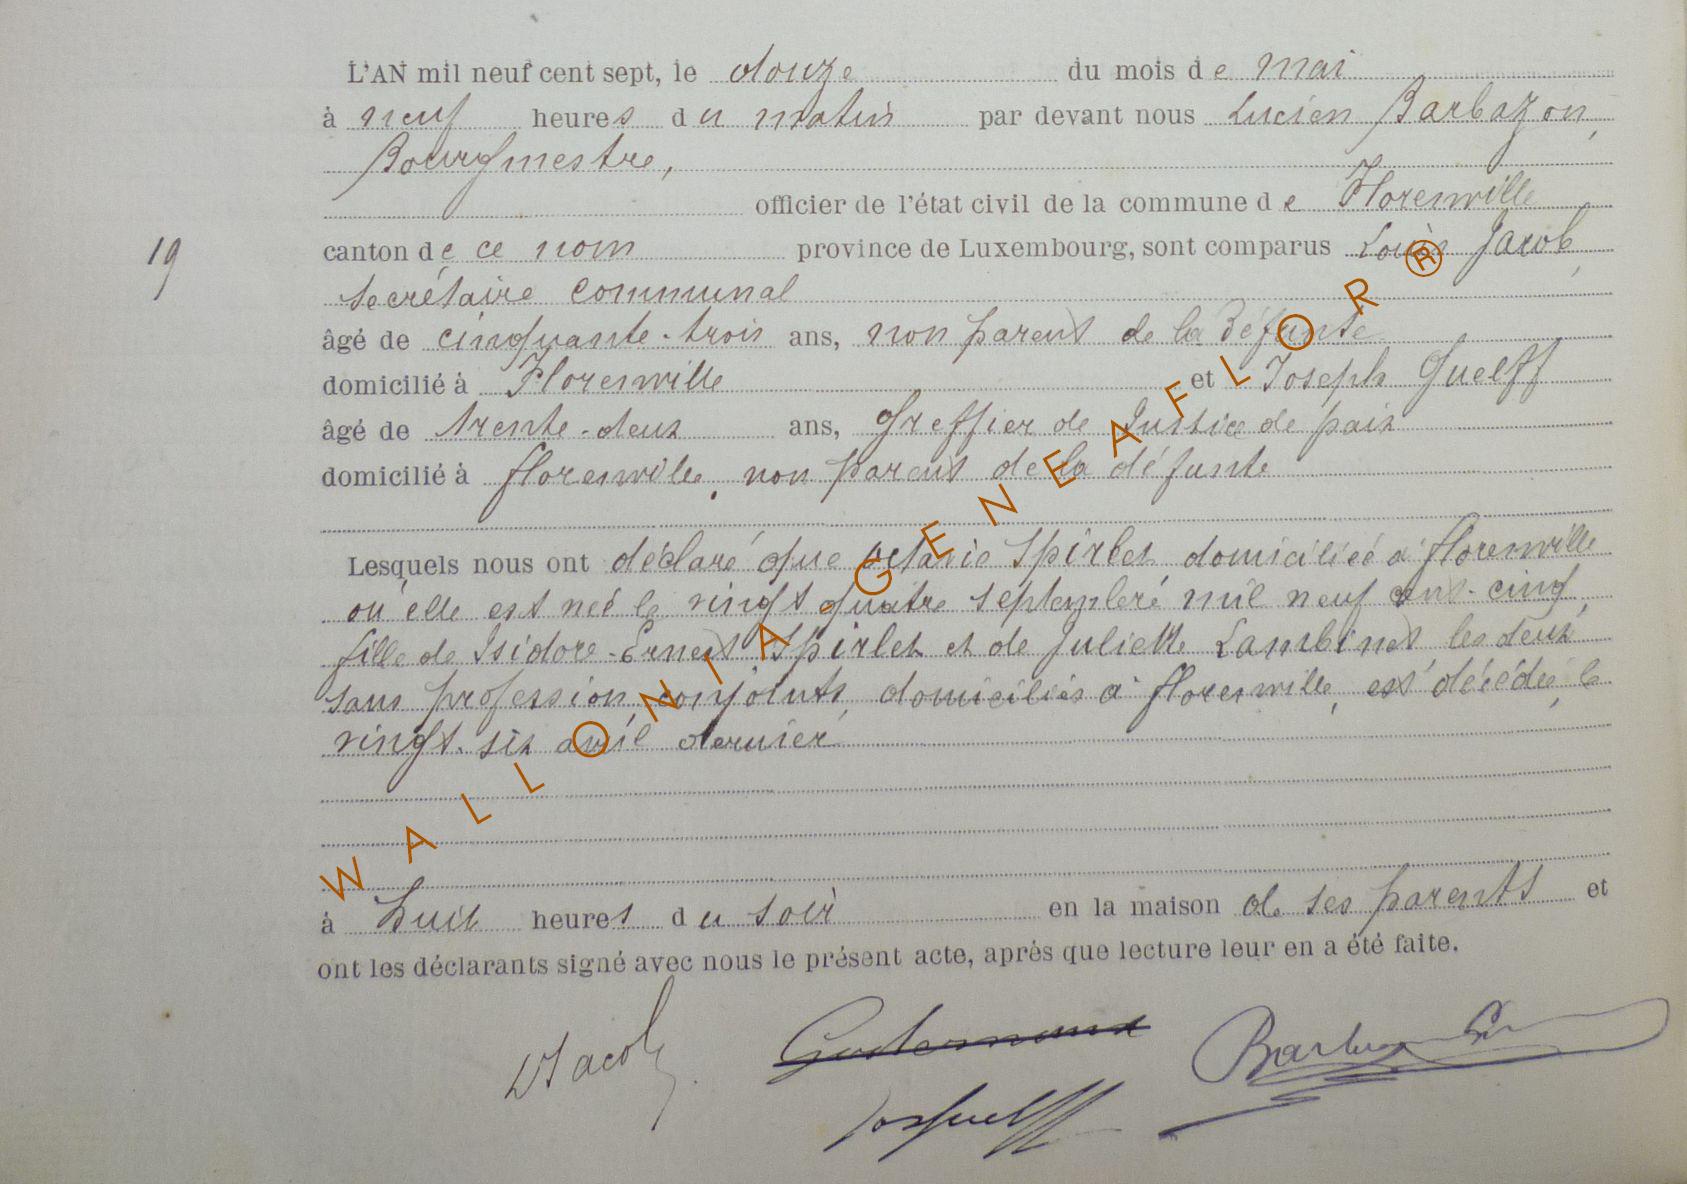 L'AN mil neuf cent sept, le douze du mois de mai
à neuf heures du matin par devant nous Lucien Barbazon,
Bourgmestre,
officier de l'état civil de la commune de Florenville
19
canton de ce nom province de Luxembourg, sont comparus Louis Jacob,
secrétaire communal
âgé de cinquante-trois ans, non parent de la défunte
domicilié à Florenville et Joseph Guelff
âgé de trente-deux ans, Greffier de Justice de paix
domicilié à florenville, non parent de la défunte
Lesquels nous ont déclaré que Octavie Spirlet domiciliée à florenville
où elle est neé le vingt quatre septembre mil neuf cent-cinq,
fille de Isidore-Ernest Spirlet et de Juliette Lambinet les deux
sans profession, conjoints, domiciliés à florenville, est décédée, le
vingt-six avril dernier
à huit heures du soir en la maison de ses parents et
ont les déclarants signé avec nous le présent acte, après que lecture leur en a été faite.
LJacob
Jos Guelff
Barbazon
WALLONIA-GENEAFLOR®